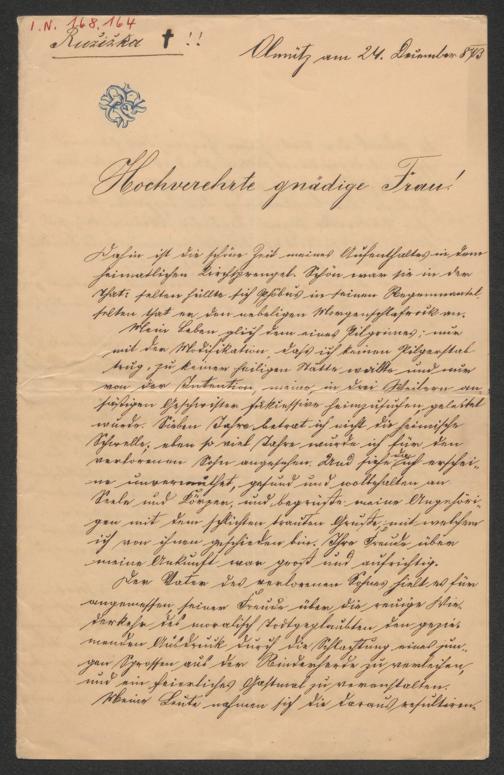 I.N. 168.164
Ružižka † !!
Olmütz am 24. December 873
Hochverehrte gnädige Frau!
Dahin ist die schöne Zeit meines Aufenthaltes in dem
heimatlichen Kirchsprengel. Schön war sie in der
That; selten hüllte sich Phöbus in seinen Regenmantel
selten that er den nebeligen Morgenschlafrock an.
Mein Leben glich dem eines Pilgrimes; nur
mit der Modifikation, daß ich keinen Pilgerstab
trug, zu keiner heiligen Stätte wallte und nur
von der Intention meine in drei Weilern an-
säßigen Geschwister heimzusuchen, geleitet
wurde. Sieben Jahre betrat ich nicht die heimische
Schwelle; eben so viel Jahre wurde ich für den
verlorenen Sohn angesehen. Und siehe da ich erschei-
ne unvermuthet, gesund und wolbehalten an
Seele und Körper, und begrüße meine Angehöri-
gen mit dem schlichten trauten Gruße, mit welchem
ich von ihnen geschieden bin. Ihre Freude über
meine Ankunft war groß und aufrichtig.
Der Vater des verlorenen Sohnes hielt es für
angemessen seiner Freude über die reuige Wie-
derkehr des moralisch Todtgeglaubten den gezie-
menden Ausdruck durch die Schlachtung eines jun-
gen Sprossen aus der Rinderherde zu verleihen,
und ein feierliches Gastmal zu veranstalten.
Meine Leute nahmen sich die daraus resultiren-